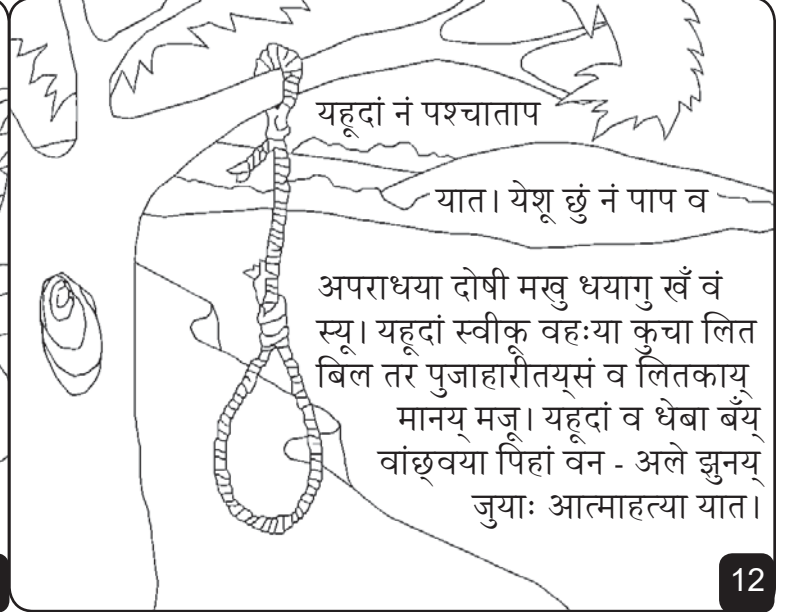 यहूदां नं पश्चाताप
यात। येशू छुं नं पाप व
अपराधया दोषी मखु धयागु खँ वं
स्यू। यहूदां स्वीकू वहःया कुचा लित
बिल तर पुजाहारीतय्‌सं व लितकाय्
मानय् मजू। यहूदां व धेबा बँय्
वांछ्वया पिहां वन - अले झुनय्
जुयाः आत्माहत्या यात।
12